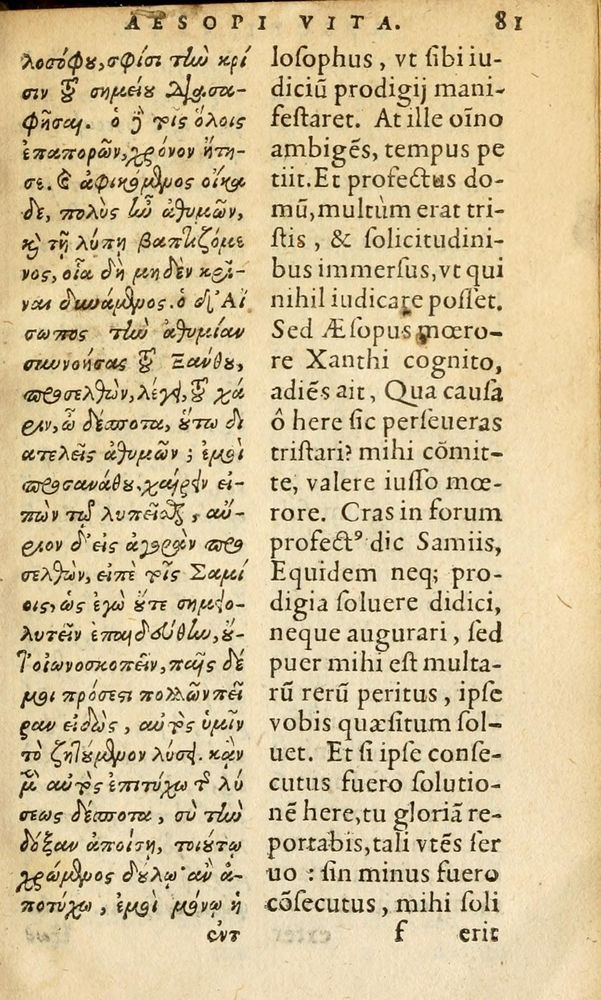 AESOPI VITA. 81
λοσόφου, σφίσι τὴν κρί
σιν τοῦ σημείου διασα-
φῆσαι. ὁ δὲ τοῖς ὅλοις
ἐπαπορῶν, χρόνον ᾔτη-
σε. καὶ ἀφικόμενος οἴκα
δε, πολὺς ἦν ἀθυμῶν,
καὶ τῇ λύπῃ βαπτιζόμε
νος, οἷα δὴ μηδὲν κρῖ-
ναι δυνάμενος. ὁ δ' Αἴ
σωπος τὴν ἀθυμίαν
συννοήσας τοῦ Ξάνθου,
προσελθὼν, λέγει, τοῦ χά
ριν, ὦ δέσποτα, οὕτω δι
ατελεῖς ἀθυμῶν; ἐμοὶ
προσανάθου, χαίρειν εἰ-
πὼν τῷ λυπεῖσθαι, αὔ-
ριον δ' εἰς ἀγορὰν προ
σελθὼν, εἰπὲ τοῖς Σαμί
οις, ὡς ἐγὼ οὔτε σημειο-
λυτεῖν ἐπαιδεύθην, οὔ-
τ' οἰωνοσκοπεῖν, παῖς δέ
μοι πρόσεστι πολλῶν πεῖ
ραν εἰδὼς, αὐτὸς ὑμῖν
τὸ ζητούμενον λύσει. κἂν
μὲν αὐτὸς ἐπιτύχω τῆς λύ
σεως δέσποτα, σὺ τὴν
δόξαν ἀποίσῃ, τοιούτῳ
χρώμενος δούλῳ· ἂν ἀ-
ποτύχω, ἐμοὶ μόνῳ ἡ
ἐντ
losophus, vt sibi iu-
diciũ prodigij mani-
festaret. At ille oĩno
ambigẽs, tempus pe
tiit. Et profectus do-
mũ, multùm erat tri-
stis, & solicitudini-
bus immersus, vt qui
nihil iudicare posset.
Sed Æsopus mœro-
re Xanthi cognito,
adiẽs ait, Qua causa
ô here sic perseueras
tristari? mihi cõmit-
te, valere iusso mœ-
rore. Cras in forum
profectꝰ dic Samiis,
Equidem neq; pro-
digia soluere didici,
neque augurari, sed
puer mihi est multa-
rũ rerũ peritus, ipse
vobis quæsitum sol-
uet. Et si ipse conse-
cutus fuero solutio-
nẽ here, tu gloriã re-
portabis, tali vtẽs ser
uo : sin minus fuero
cõsecutus, mihi soli
f erit